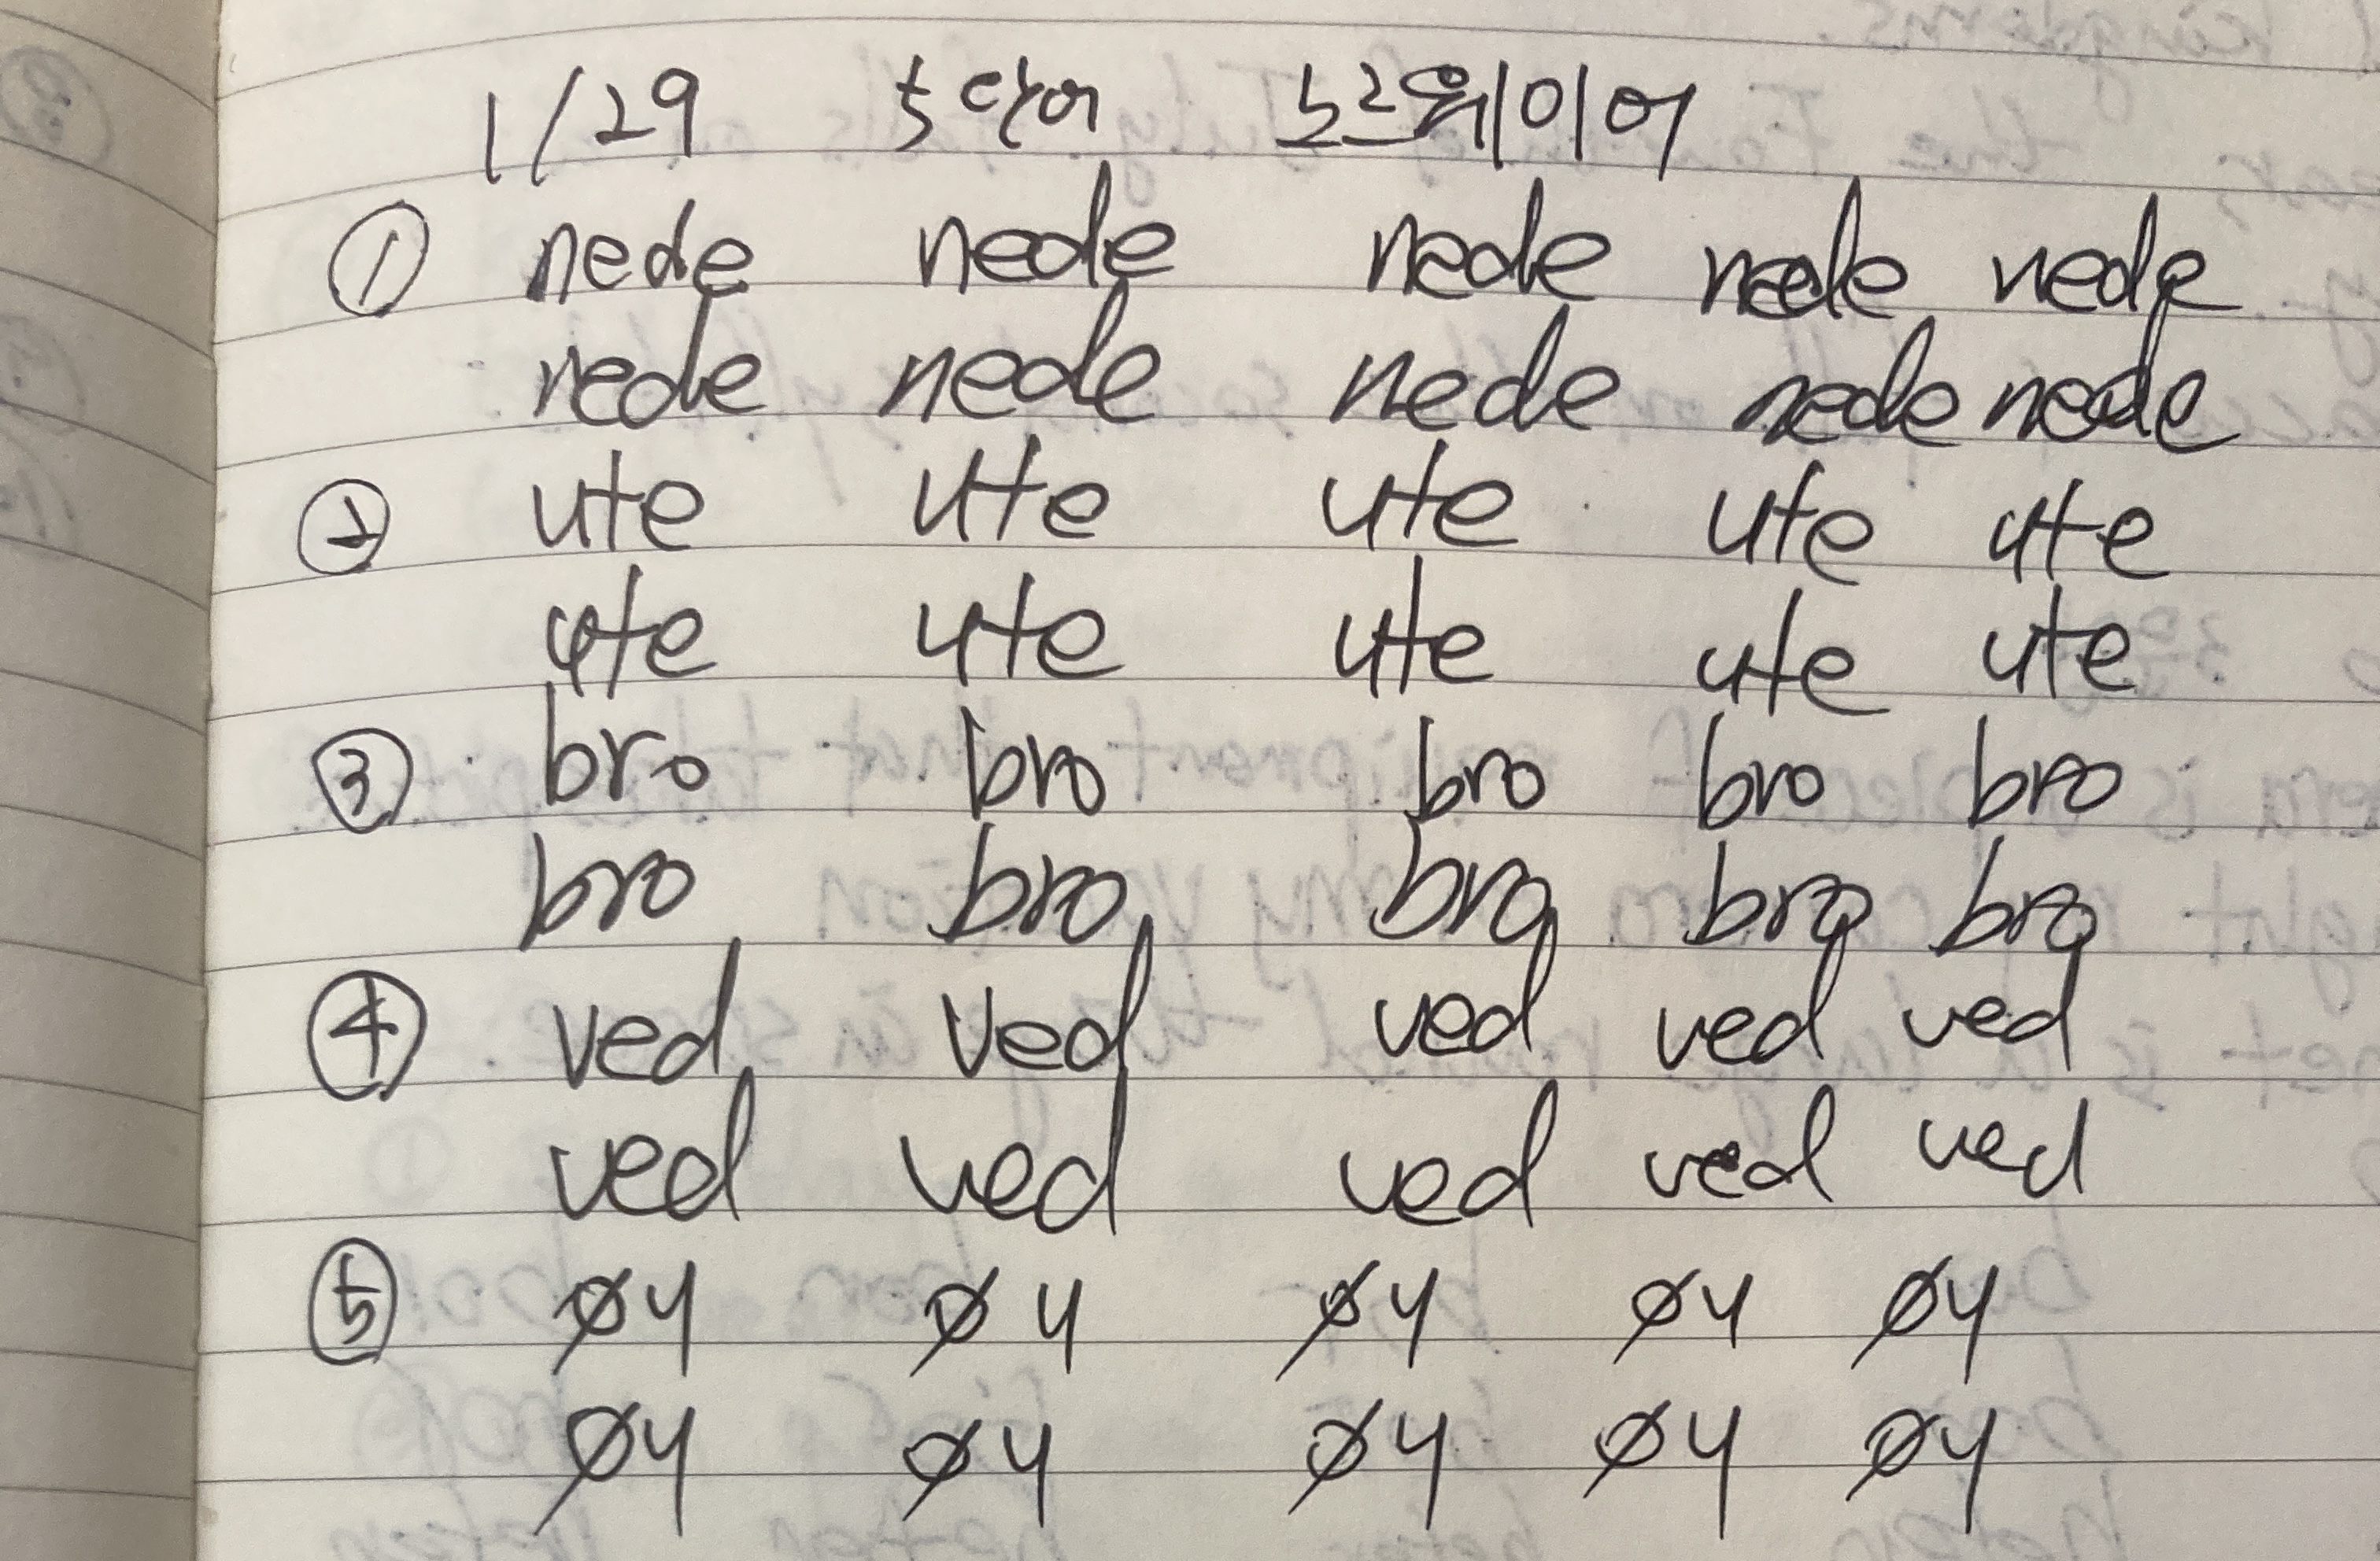 1/29 5단어 노르웨이어
① nede nede nede nede nede
nede nede nede nede nede
② ute ute ute ute ute
ute ute ute ute ute
③ bro bro bro bro bro
bro bro bro bro bro
④ ved ved ved ved ved
ved ved ved ved ved
⑤ øy øy øy øy øy
øy øy øy øy øy